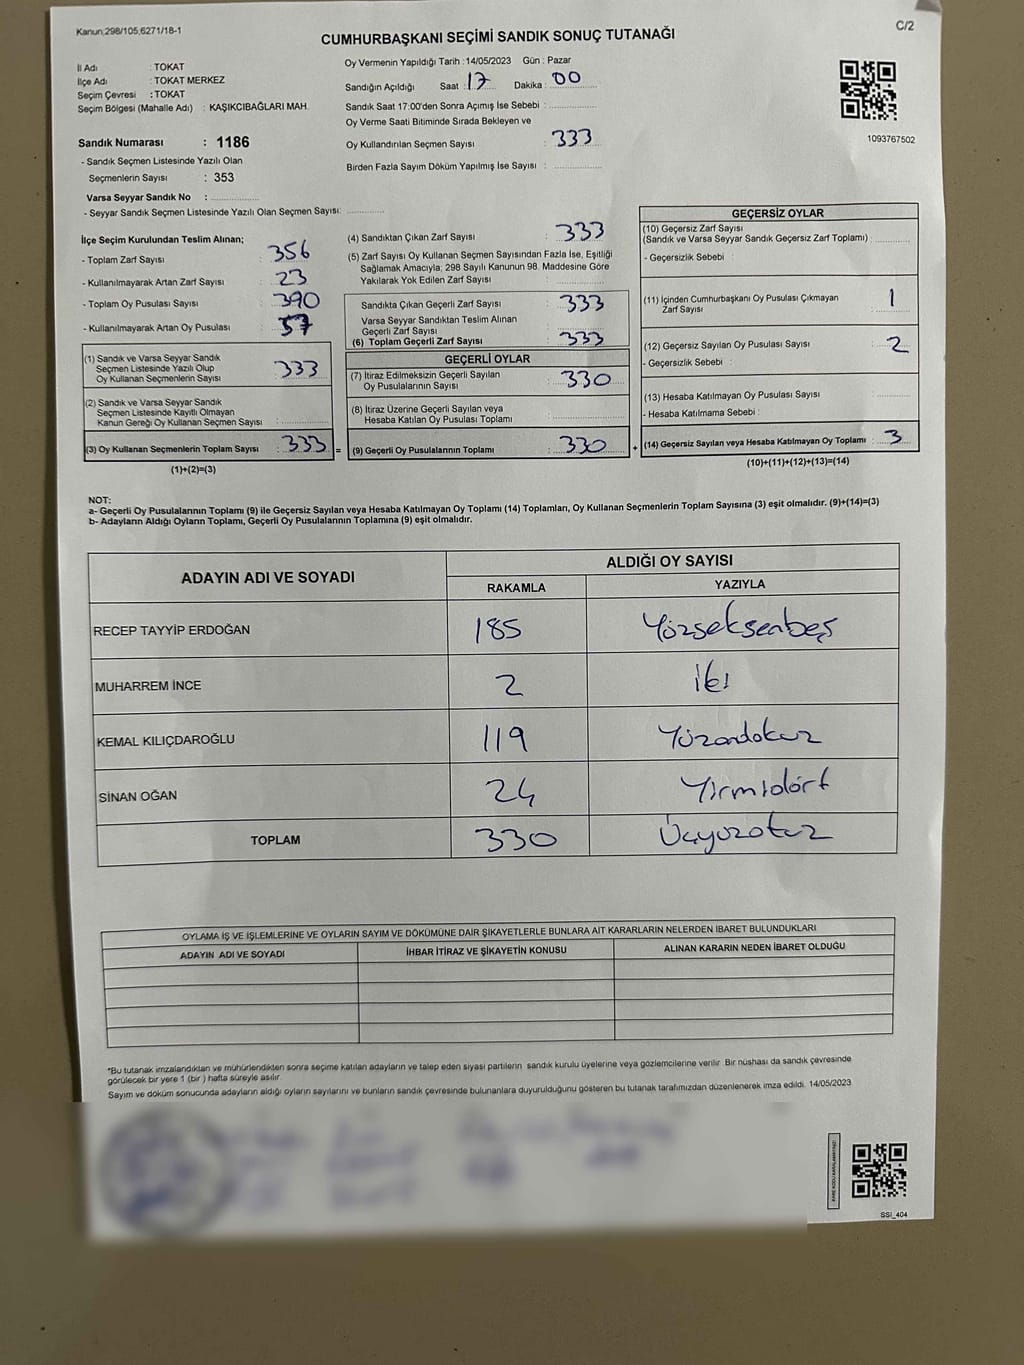 Kanun;298/105,6271/18-1
C/2
CUMHURBAŞKANI SEÇİMİ SANDIK SONUÇ TUTANAĞI
İl Adı : TOKAT
İlçe Adı : TOKAT MERKEZ
Seçim Çevresi : TOKAT
Seçim Bölgesi (Mahalle Adı) : KAŞIKCIBAĞLARI MAH.
Sandık Numarası : 1186
- Sandık Seçmen Listesinde Yazılı Olan
Seçmenlerin Sayısı : 353
Varsa Seyyar Sandık No :
- Seyyar Sandık Seçmen Listesinde Yazılı Olan Seçmen Sayısı:
Oy Vermenin Yapıldığı Tarih : 14/05/2023 Gün : Pazar
Sandığın Açıldığı Saat : 17 Dakika : 00
Sandık Saat 17:00'den Sonra Açımış İse Sebebi :
Oy Verme Saati Bitiminde Sırada Bekleyen ve
Oy Kullandırılan Seçmen Sayısı : 333
Birden Fazla Sayım Döküm Yapılmış İse Sayısı :
1093767502
İlçe Seçim Kurulundan Teslim Alınan;
- Toplam Zarf Sayısı : 356
- Kullanılmayarak Artan Zarf Sayısı : 23
- Toplam Oy Pusulası Sayısı : 390
- Kullanılmayarak Artan Oy Pusulası : 57
(1) Sandık ve Varsa Seyyar Sandık
Seçmen Listesinde Yazılı Olup
Oy Kullanan Seçmenlerin Sayısı : 333
(2) Sandık ve Varsa Seyyar Sandık
Seçmen Listesinde Kayıtlı Olmayan
Kanun Gereği Oy Kullanan Seçmen Sayısı :
(3) Oy Kullanan Seçmenlerin Toplam Sayısı : 333 =
(1)+(2)=(3)
(4) Sandıktan Çıkan Zarf Sayısı : 333
(5) Zarf Sayısı Oy Kullanan Seçmen Sayısından Fazla İse, Eşitliği
Sağlamak Amacıyla; 298 Sayılı Kanunun 98. Maddesine Göre
Yakılarak Yok Edilen Zarf Sayısı :
Sandıkta Çıkan Geçerli Zarf Sayısı : 333
Varsa Seyyar Sandıktan Teslim Alınan
Geçerli Zarf Sayısı :
(6) Toplam Geçerli Zarf Sayısı : 333
GEÇERLİ OYLAR
(7) İtiraz Edilmeksizin Geçerli Sayılan
Oy Pusulalarının Sayısı : 330
(8) İtiraz Üzerine Geçerli Sayılan veya
Hesaba Katılan Oy Pusulası Toplamı :
(9) Geçerli Oy Pusulalarının Toplamı : 330 +
GEÇERSİZ OYLAR
(10) Geçersiz Zarf Sayısı
(Sandık ve Varsa Seyyar Sandık Geçersiz Zarf Toplamı) :
- Geçersizlik Sebebi :
(11) İçinden Cumhurbaşkanı Oy Pusulası Çıkmayan
Zarf Sayısı : 1
(12) Geçersiz Sayılan Oy Pusulası Sayısı : 2
- Geçersizlik Sebebi :
(13) Hesaba Katılmayan Oy Pusulası Sayısı :
- Hesaba Katılmama Sebebi :
(14) Geçersiz Sayılan veya Hesaba Katılmayan Oy Toplamı : 3
(10)+(11)+(12)+(13)=(14)
NOT:
a- Geçerli Oy Pusulalarının Toplamı (9) ile Geçersiz Sayılan veya Hesaba Katılmayan Oy Toplamı (14) Toplamları, Oy Kullanan Seçmenlerin Toplam Sayısına (3) eşit olmalıdır. (9)+(14)=(3)
b- Adayların Aldığı Oyların Toplamı, Geçerli Oy Pusulalarının Toplamına (9) eşit olmalıdır.
ADAYIN ADI VE SOYADI
ALDIĞI OY SAYISI
RAKAMLA YAZIYLA
RECEP TAYYİP ERDOĞAN 185 Yüzseksenbeş
MUHARREM İNCE 2 iki
KEMAL KILIÇDAROĞLU 119 Yüzondokuz
SİNAN OĞAN 24 Yirmidört
TOPLAM 330 Üçyüzotuz
OYLAMA İŞ VE İŞLEMLERİNE VE OYLARIN SAYIM VE DÖKÜMÜNE DAİR ŞİKAYETLERLE BUNLARA AİT KARARLARIN NELERDEN İBARET BULUNDUKLARI
ADAYIN ADI VE SOYADI İHBAR İTİRAZ VE ŞİKAYETİN KONUSU ALINAN KARARIN NEDEN İBARET OLDUĞU
*Bu tutanak imzalandıktan ve mühürlendikten sonra seçime katılan adayların ve talep eden siyasi partilerin sandık kurulu üyelerine veya gözlemcilerine verilir. Bir nüshası da sandık çevresinde
görülecek bir yere 1 (bir ) hafta süreyle asılır.
Sayım ve döküm sonucunda adayların aldığı oyların sayılarını ve bunların sandık çevresinde bulunanlara duyurulduğunu gösteren bu tutanak tarafımızdan düzenlenerek imza edildi. 14/05/2023
SSI_404